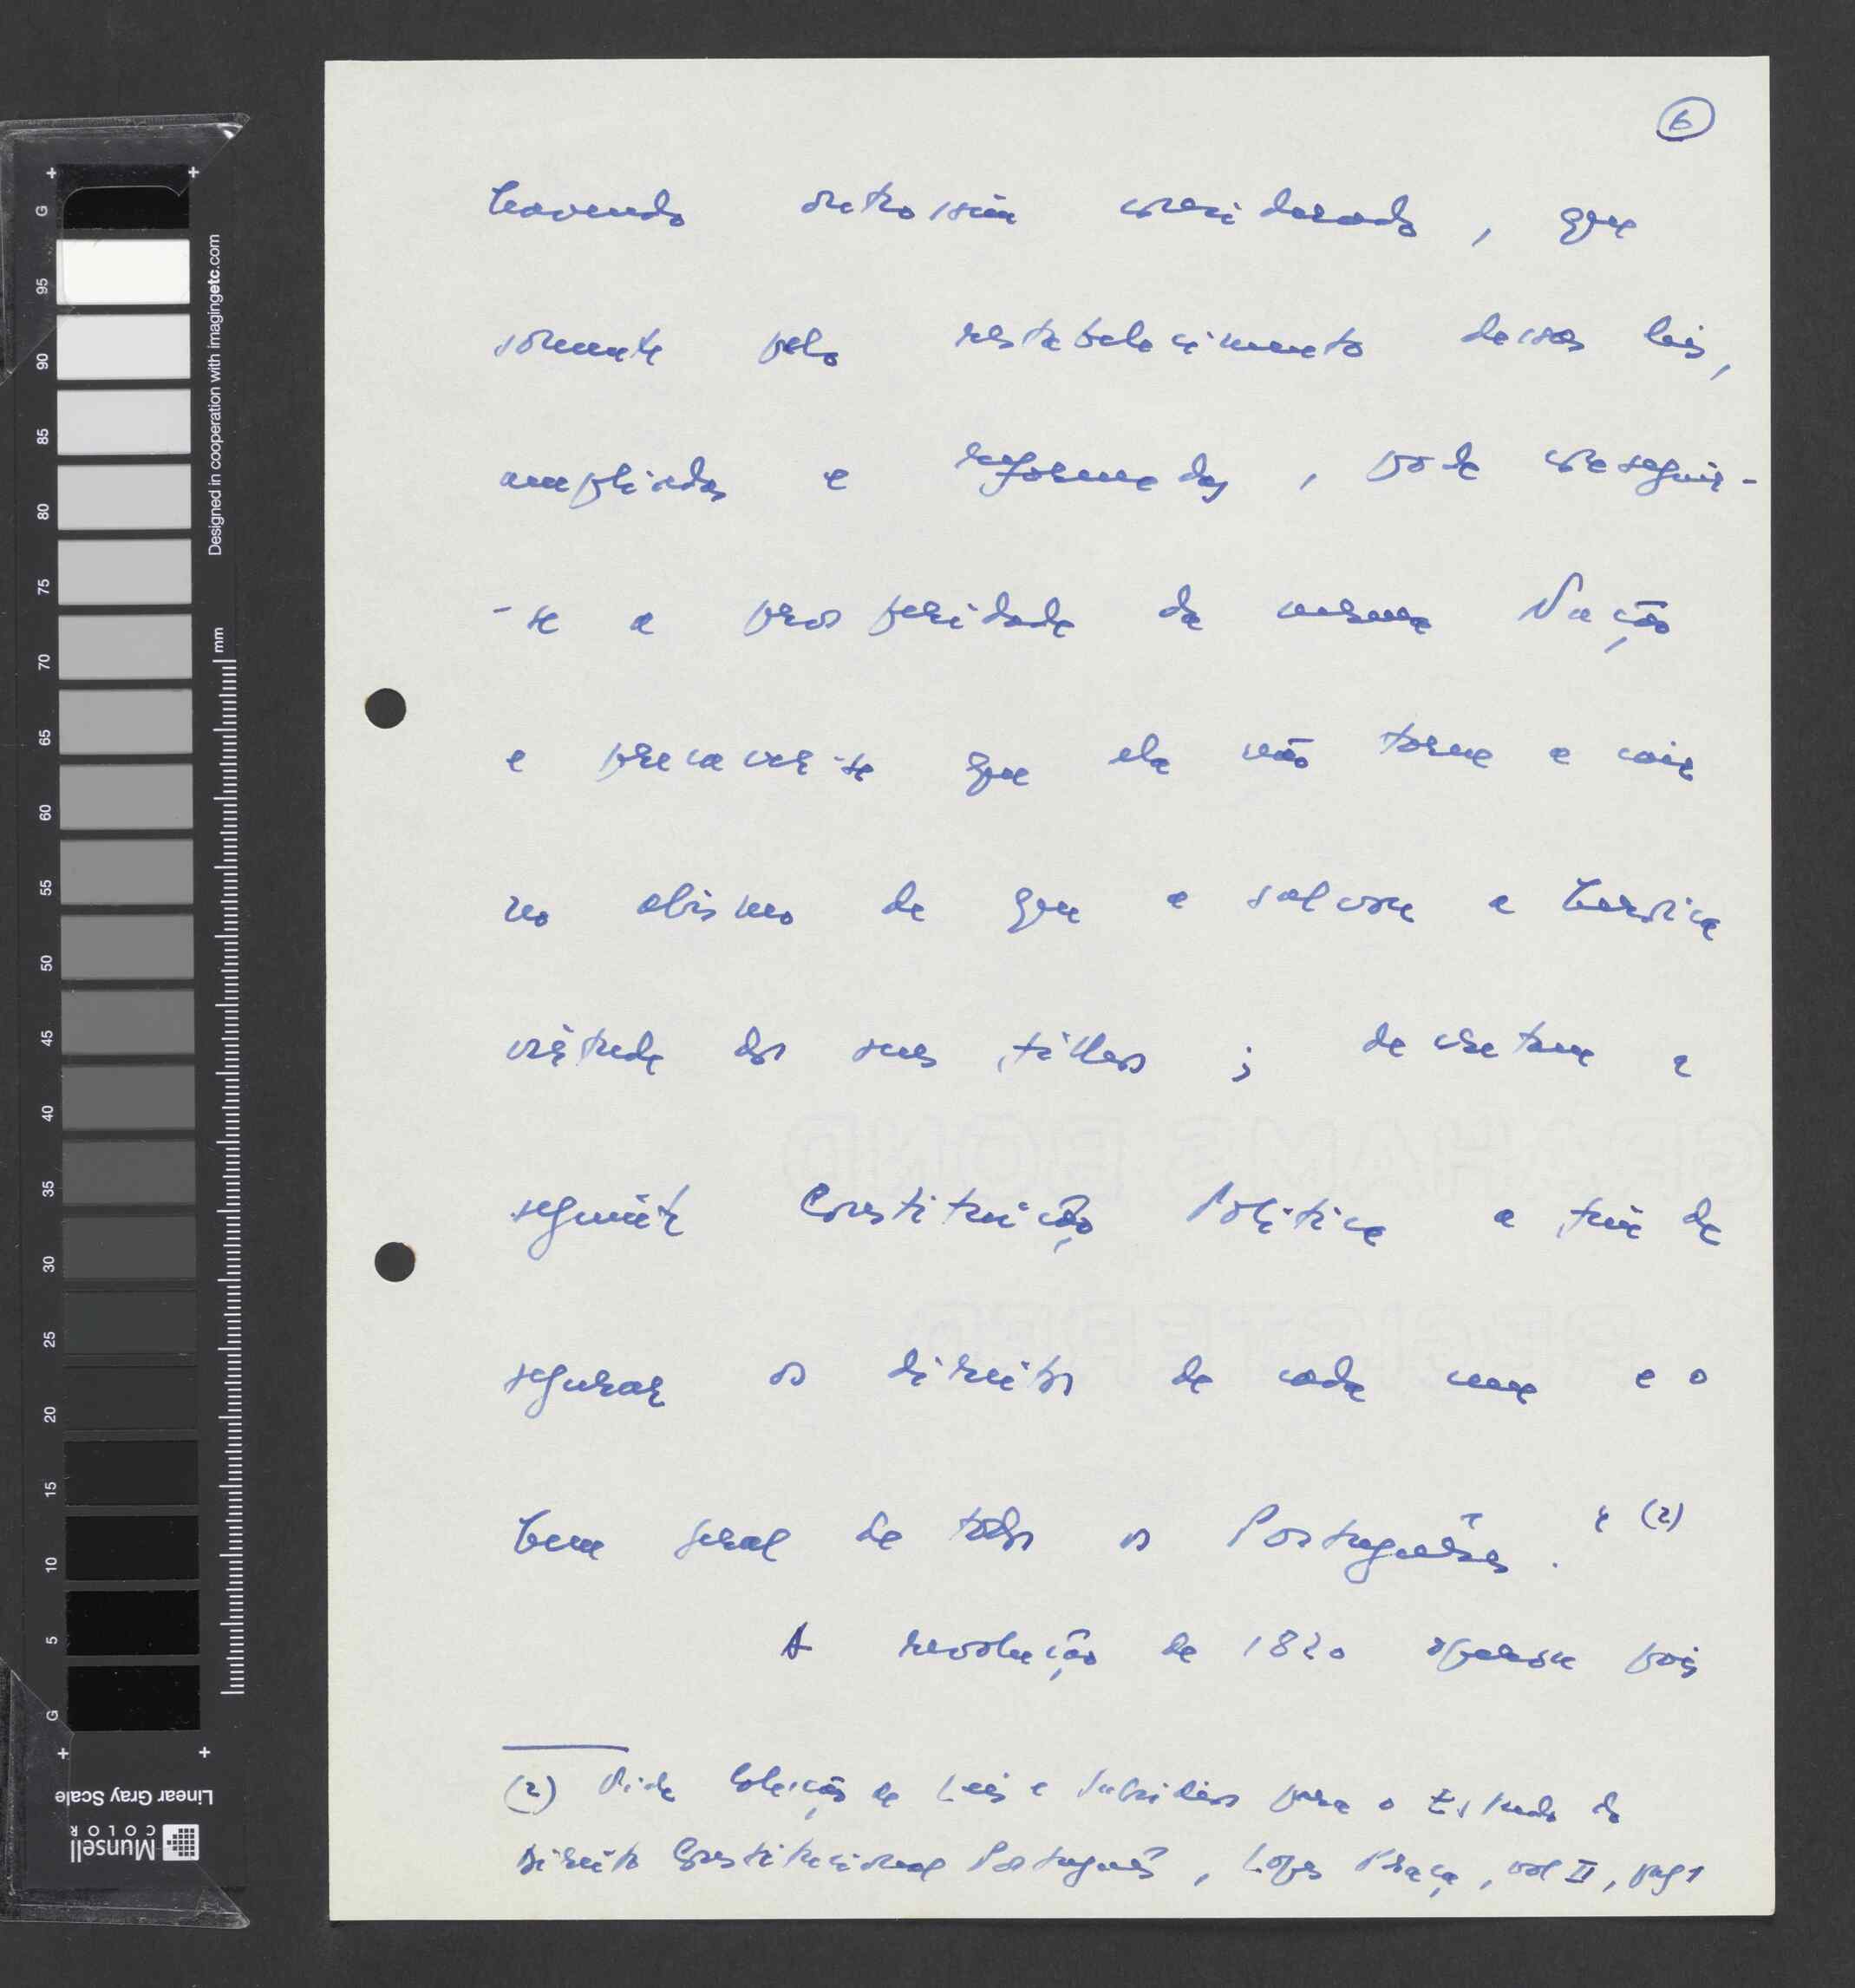 6
havendo outrossim considerado, que
somente pelo restabelecimento dessas leis,
ampliadas e reformadas, pode conseguir-
-se a prosperidade da mesma Nação
e precaver-se que ela não torne a cair
no abismo de que a salvou a heróica
virtude dos seus filhos; decretam a
seguinte Constituição Política a fim de
segurar os direitos de cada um e o
bem geral de todos os Portugueses." (2)
A revolução de 1820 operou pois
(2) Vide Coleição de Leis e Subsídios para o Estudo do
Direito Constitucional Português, Lopes Praça, vol II, pag 1
Designed in cooperation with imagingetc.com
mm
G 95 90 85 80 75 70 65 60 55 50 45 40 35 30 25 20 15 10 5 G
Linear Gray Scale
Munsell
COLOR